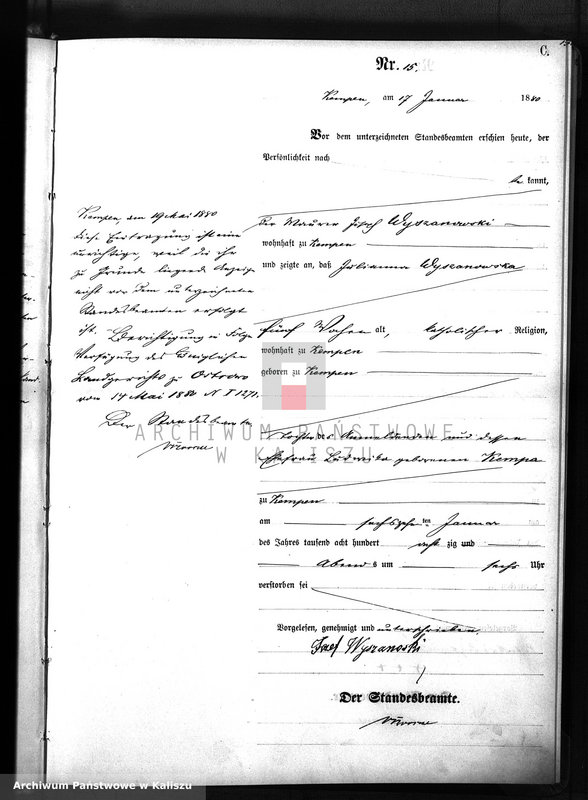 C.
Nr. 15.
Kempen, am 17 Januar 1880
Vor dem unterzeichneten Standesbeamten erschien heute, der
Persönlichkeit nach
be kannt,
der Maurer Josef Wyszanowski
wohnhaft zu Kempen
und zeigte an, daß Julianna Wyszanowska
fünf Wochen alt, katholischer Religion,
wohnhaft zu Kempen
geboren zu Kempen
Tochter des Anmeldenden und dessen
Ehefrau Ludwika geborenen Kempa
zu Kempen
am sechszehnten Januar
des Jahres tausend acht hundert acht zig und
Abends um sechs Uhr
verstorben sei
Vorgelesen, genehmigt und unterschrieben.
Josef Wyszanoski
Der Standesbeamte.
Kempen, den 19 Mai 1880
Diese Eintragung ist eine
unrichtige, weil die ihr
zu Grunde liegende Anzeige
nicht vor dem unterzeichneten
Standesbeamten erfolgt
ist. Berichtigung in Folge
Verfügung des Königlichen
Landgerichts zu Ostrowo
vom 14 Mai 1880 N I 1271.
Der Standesbeamte
ARCHIWUM PAŃSTWOWE
W KALISZU
Archiwum Państwowe w Kaliszu